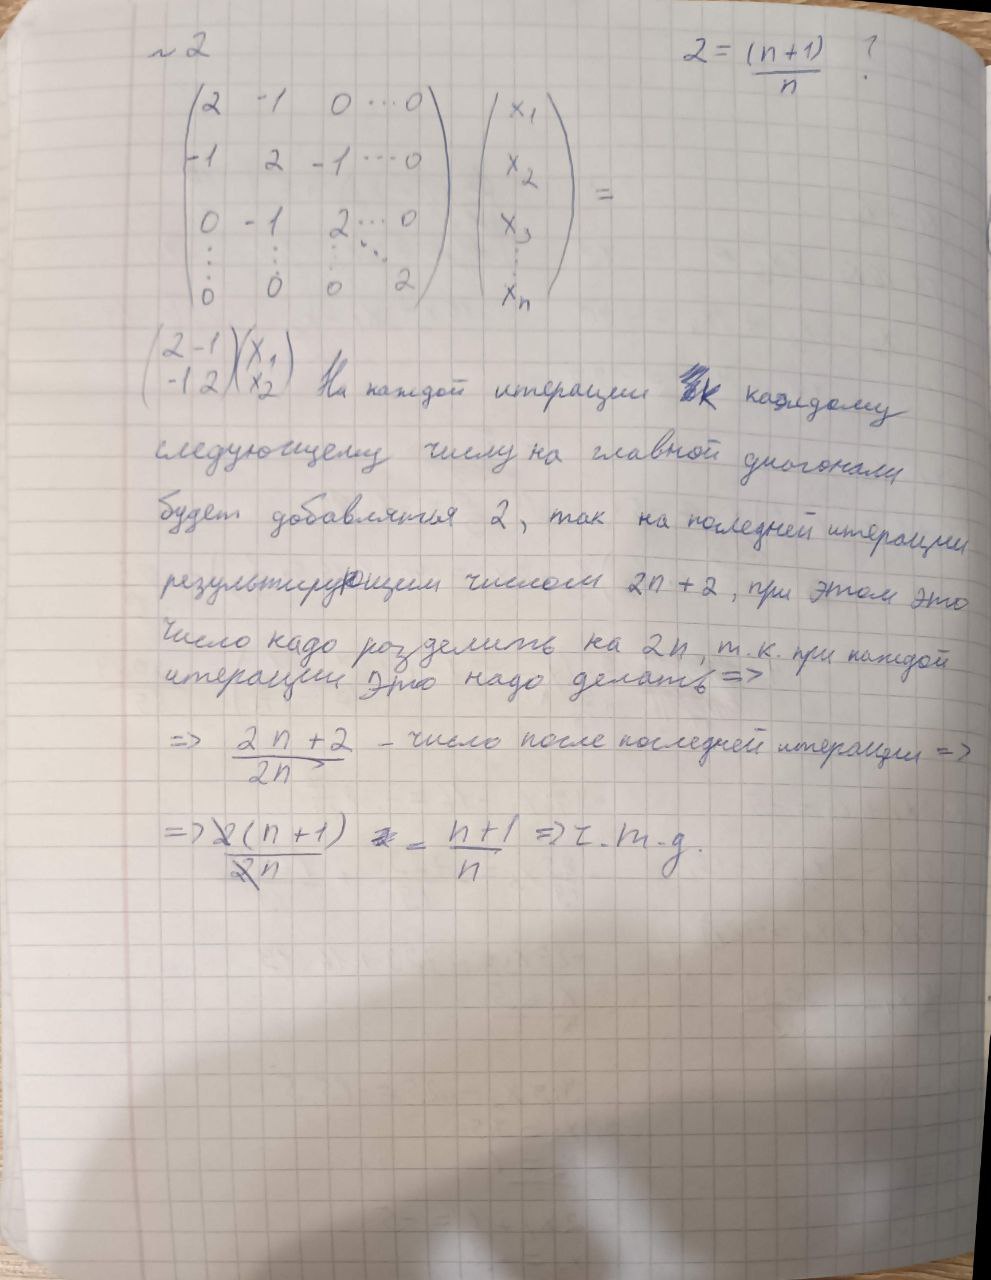 ~ 2
2 = (n+1)/n ?
2 -1 0 ... 0 x₁
-1 2 -1 ... 0 x₂ =
0 -1 2 ... 0 x₃
⋮ ⋮ ⋮ ⋱ ⋮
0 0 0 2 xₙ
2 -1 x₁
-1 2 x₂ На каждой итерации к каждому
следующему числу на главной диагонали
будет добавляться 2, так на последней итерации
результирующим числом 2n + 2, при этом это
число надо разделить на 2n, т.к. при каждой
итерации это надо делать =>
=> (2n + 2)/2n - число после последней итерации =>
=> 2(n + 1)/2n = (n+1)/n => ч.т.д.